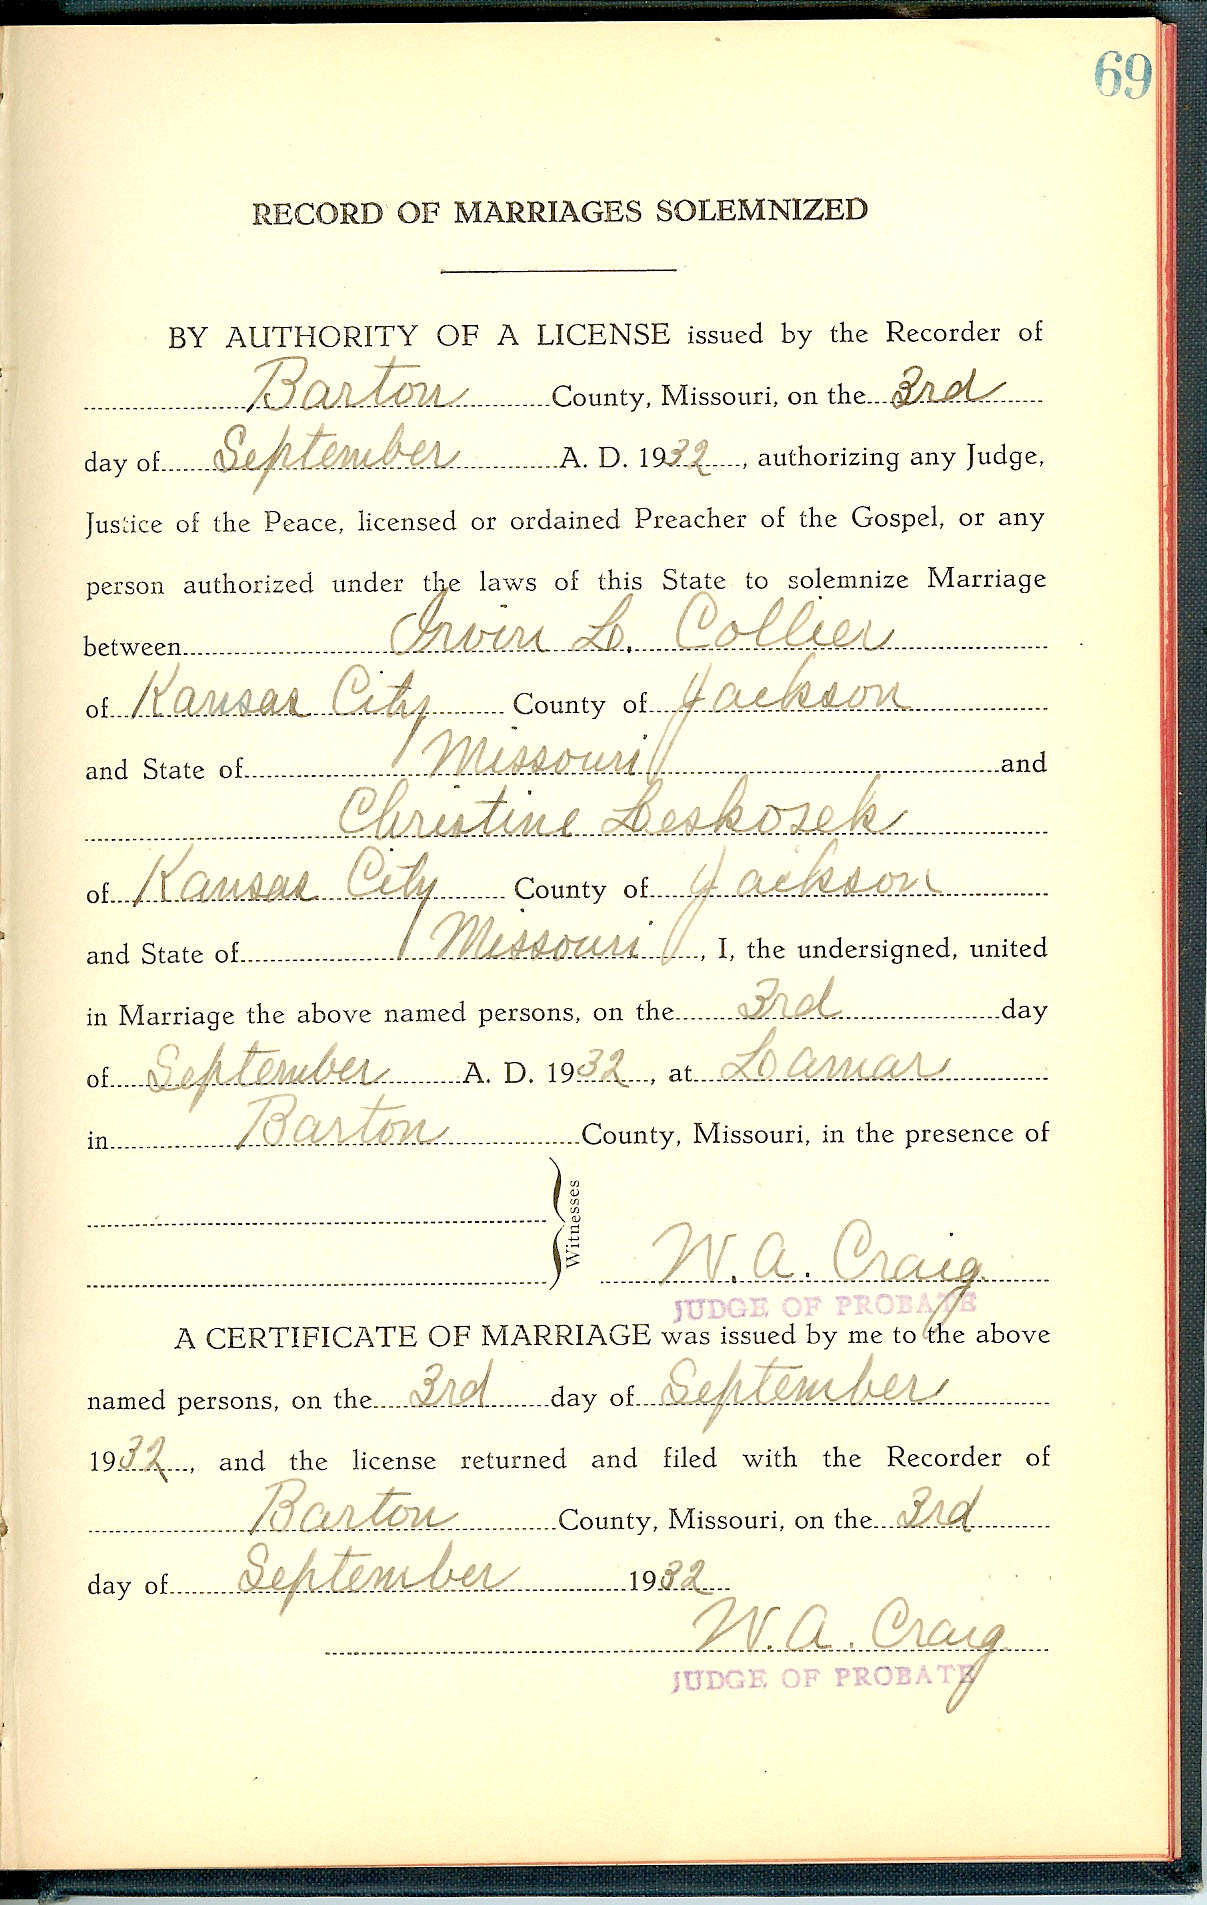 69
RECORD OF MARRIAGES SOLEMNIZED
BY AUTHORITY OF A LICENSE issued by the Recorder of
Barton County, Missouri, on the 3rd
day of September A. D. 1932, authorizing any Judge,
Justice of the Peace, licensed or ordained Preacher of the Gospel, or any
person authorized under the laws of this State to solemnize Marriage
between Irvin L. Collier
of Kansas City County of Jackson
and State of Missouri and
Christine Leskosek
of Kansas City County of Jackson
and State of Missouri, I, the undersigned, united
in Marriage the above named persons, on the 3rd day
of September A. D. 1932, at Lamar
in Barton County, Missouri, in the presence of
Witnesses
W. A. Craig
JUDGE OF PROBATE
A CERTIFICATE OF MARRIAGE was issued by me to the above
named persons, on the 3rd day of September
1932, and the license returned and filed with the Recorder of
Barton County, Missouri, on the 3rd
day of September 1932
W. A. Craig
JUDGE OF PROBATE